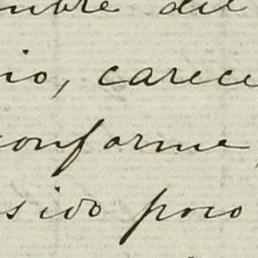 mbre del
nio, carece
conforme,
sido poco